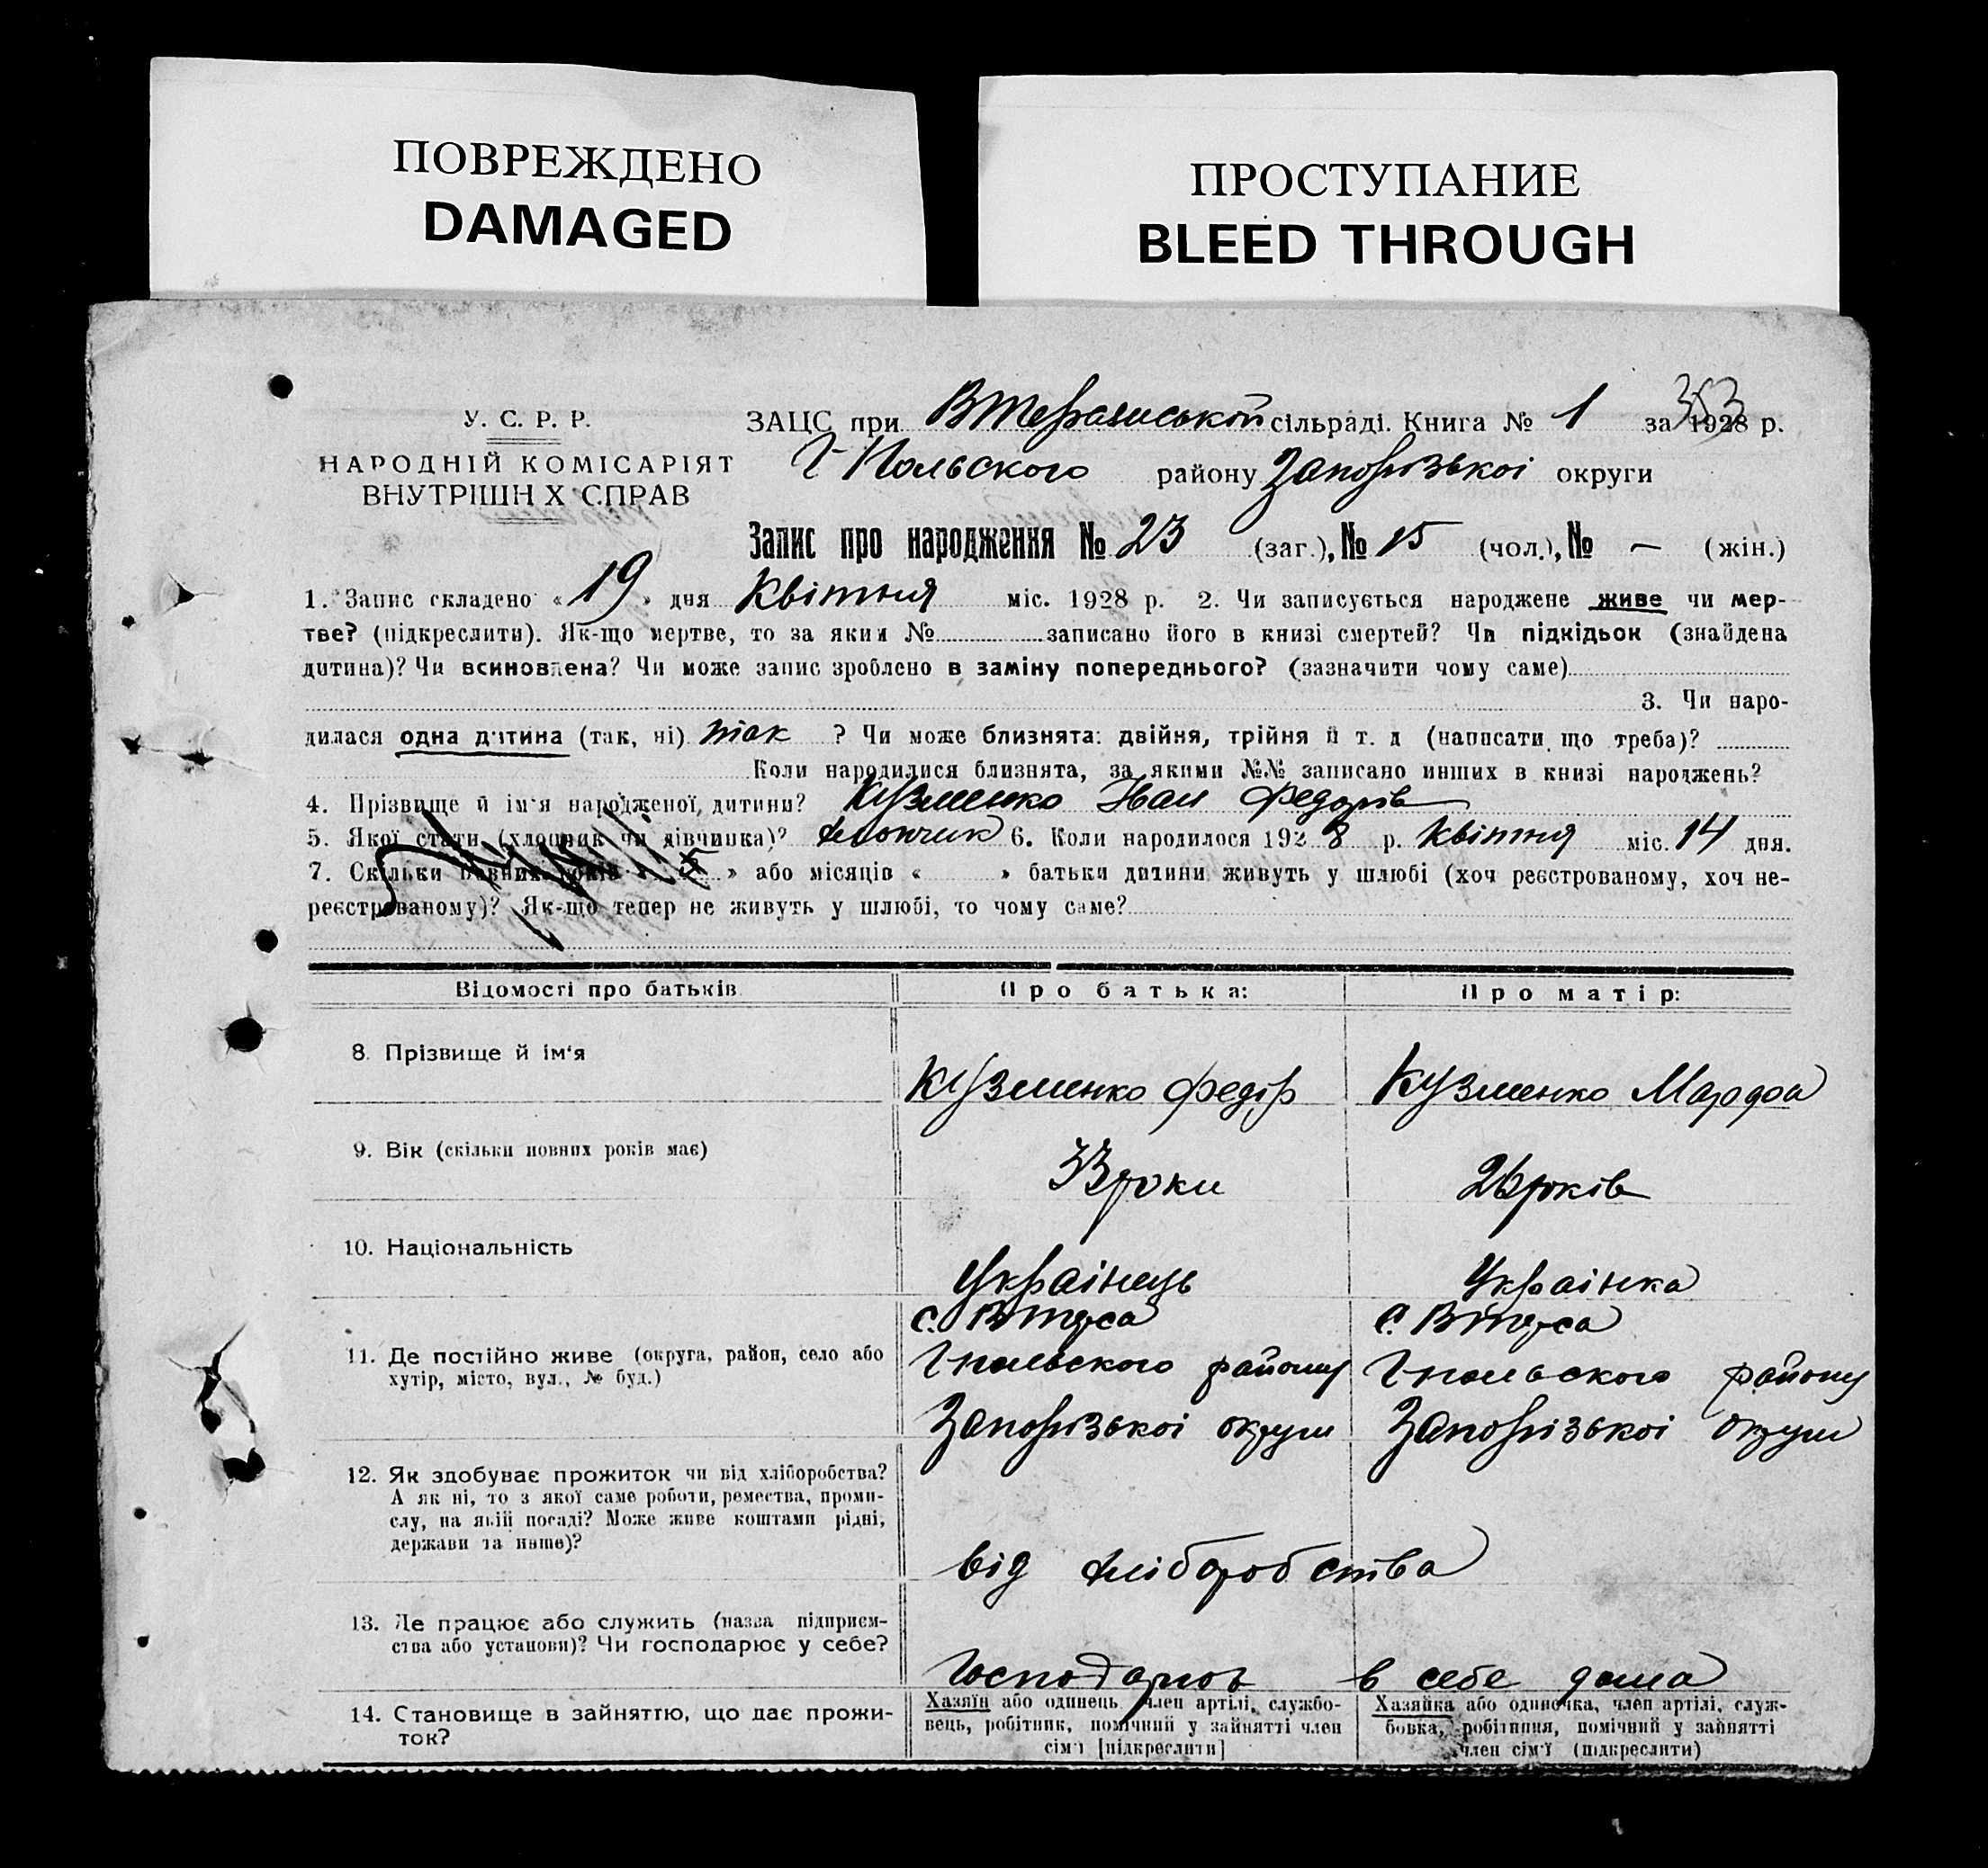 ПОВРЕЖДЕНО
DAMAGED
ПРОСТУПАНИЕ
BLEED THROUGH
353
У. С. Р. Р.
НАРОДНІЙ КОМІСАРІЯТ
ВНУТРІШН Х СПРАВ
ЗАЦС при сільраді. Книга № 1 за 1928 р.
Г-Польского району Запорізькоі округи
Запис про народження № 23 (заг.), № 15 (чол.), № — (жін.)
1. Запис складено « 19 » дня Квітня міс. 1928 р. 2. Чи записується народжене живе чи мер-
тве? (підкреслити). Як-що мертве, то за яким № записано його в книзі смертей? Чи підкідьок (знайдена
дитина)? Чи всиновлена? Чи може запис зроблено в заміну попереднього? (зазначити чому саме)
3. Чи наро-
дилася одна дитина (так, ні) так ? Чи може близнята: двійня, трійня й т. д (написати що треба)?
Коли народилися близнята, за якими №№ записано инших в книзі народжень?
4. Прізвище й ім'я народженої дитини? Кузменко Іван Федорів
5. Якої стати (хлопчик чи дівчинка)? хлопчик 6. Коли народилося 1928 р. Квітня міс. 14 дня.
7. Скільки повних років « » або місяців « » батьки дитини живуть у шлюбі (хоч реєстрованому, хоч не-
реєстрованому)? Як-що тепер не живуть у шлюбі, то чому саме?
Відомості про батьків
Про батька:
Про матір:
8. Прізвище й ім'я
Кузменко Федір
Кузменко
9. Вік (скільки повних років має)
33 роки
26 років
10. Національність
Украінець
Украінка
11. Де постійно живе (округа, район, село або
хутір, місто, вул., № буд.)
с. Втерса
Гпольского району
Запорізькоі округи
с. Втерса
Гпольского району
Запорізькоі округи
12. Як здобуває прожиток чи від хліборобства?
А як ні, то з якої саме роботи, ремества, проми-
слу, на якій посаді? Може живе коштами рідні,
держави та инше)?
від хліборобства
13. Де працює або служить (назва підприєм-
ства або установи)? Чи господарює у себе?
в себе дома
14. Становище в зайняттю, що дає прожи-
ток?
Хазяїн або одинець, член артілі, службо-
вець, робітник, помічний у зайнятті член
сім'ї [підкреслити]
Хазяйка або одиночка, член артілі, служ-
бовка, робітниця, помічний у зайнятті
член сім'ї (підкреслити)